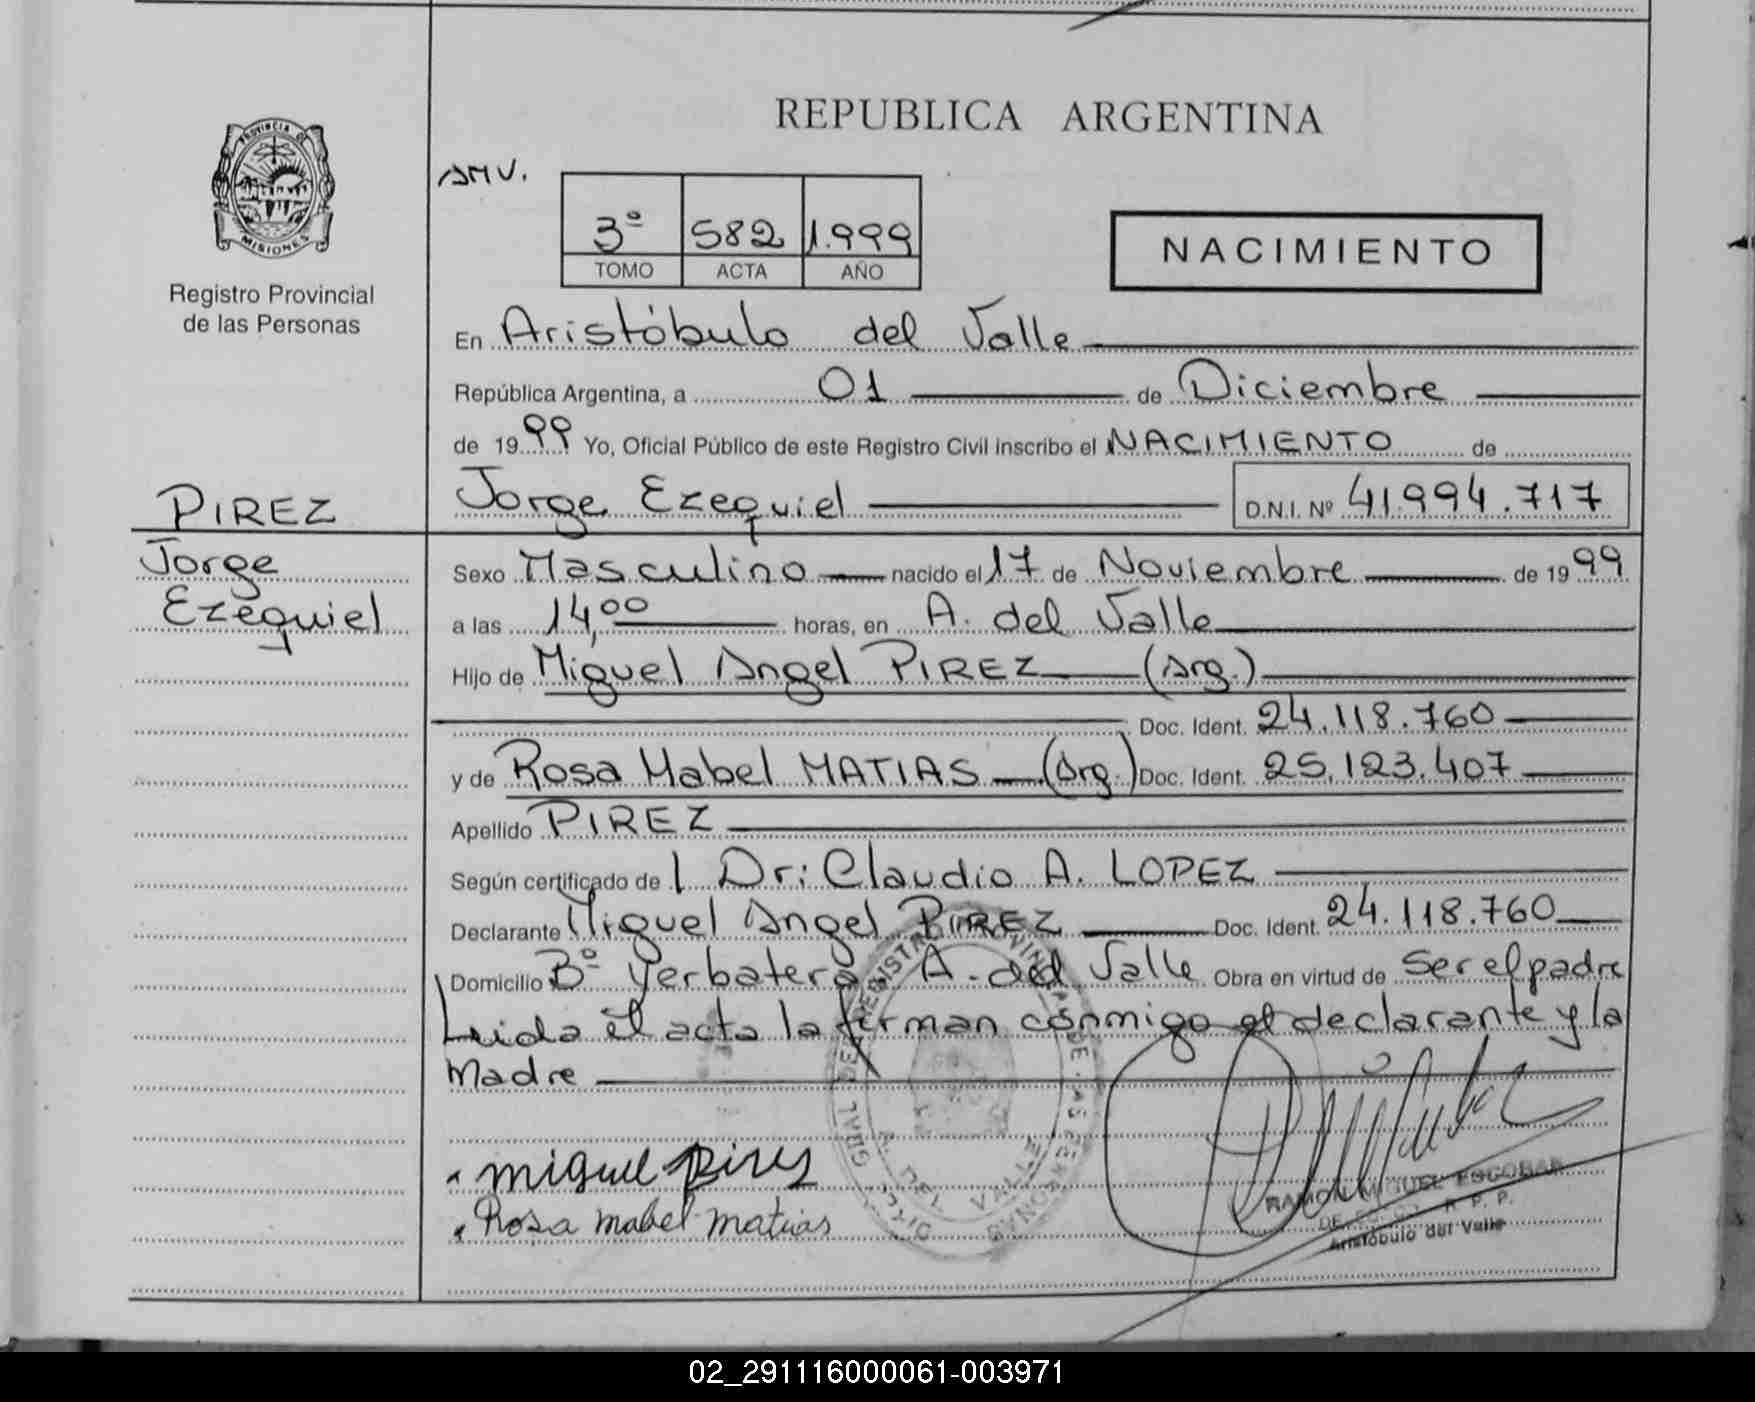 REPUBLICA ARGENTINA
PROVINCIA DE
MISIONES
Registro Provincial
de las Personas
3º 582 1.999
TOMO ACTA AÑO
NACIMIENTO
En Aristóbulo del Valle
República Argentina, a 01 de Diciembre
de 1999 Yo, Oficial Público de este Registro Civil inscribo el NACIMIENTO de
PIREZ
Jorge Ezequiel D.N.I. Nº 41.994.717
Jorge
Ezequiel
Sexo Masculino nacido el 17 de Noviembre de 1999
a las 14,00 horas, en A. del Valle
Hijo de Miguel Angel PIREZ (Arg.)
Doc. Ident. 24.118.760
y de Rosa Mabel MATIAS (Arg.) Doc. Ident. 25.123.407
Apellido PIREZ
Según certificado de l Dr: Claudio A. LOPEZ
Declarante Miguel Angel PIREZ Doc. Ident. 24.118.760
Domicilio Bº Yerbatero A. del Valle Obra en virtud de Ser el padre
Leida el acta la firman conmigo el declarante y la
Madre
miguel Pires
Rosa mabel matias
RAMON MIGUEL ESCOBAR
R. P. P.
Aristóbulo del Valle
02_291116000061-003971